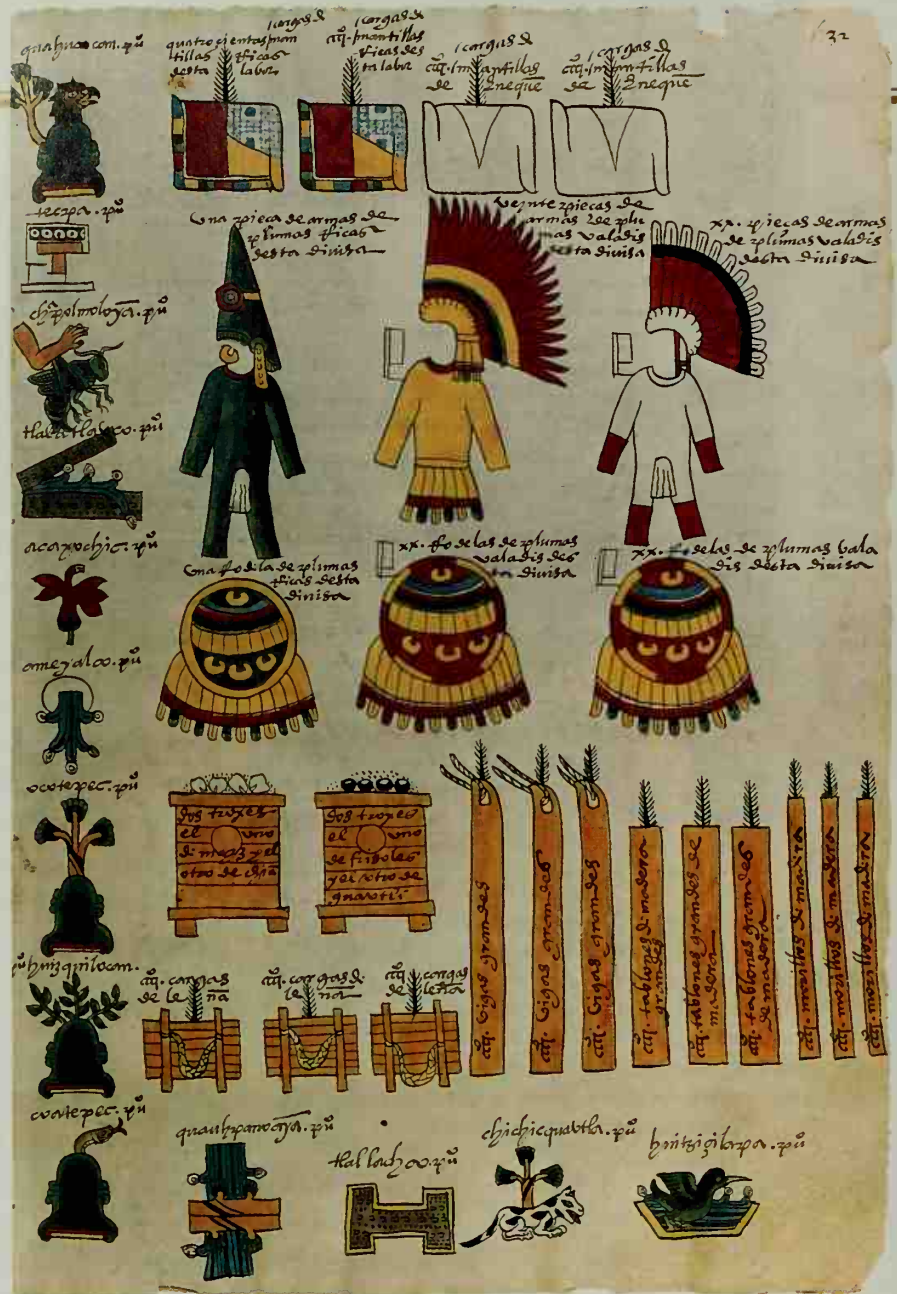 32
quahuacan. puo
quatrocientas man
tillas Ricas
desta labor
cargas de
iiiicº. mantillas
Ricas des
ta labor
cargas de
iiiicº. mantillas
de Enequē
cargas de
iiiicº. mantillas
de Enequē
tecpa. puo
Una pieca de armas de
plumas Ricas
desta divisa
Veinte piecas de
armas de plu
mas valadis
desta divisa
xx. piecas de armas
de plumas valadis
desta divisa
chapolmoloyā. puo
tlalatlauco. puo
acaxochic. puo
Una Rodela de plumas
Ricas desta
divisa
xx. Rodelas de plumas
valadis des
ta divisa
xx. Rodelas de plumas vala
dis desta divisa
ameyalco. puo
ocotepec. puo
dos troxes
el uno
de mayz y el
otro de chia
dos troxes
el uno
de frisoles
y el otro de
guavtli
iiiicº. Vigas grandes
iiiicº. Vigas grandes
iiiicº. Vigas grandes
iiiicº. tablones de madera
grandes
iiiicº. tablones grandes de
madera
iiiicº. tablones grandes
de madera
iiiicº. morillos de madera
iiiicº. morillos de madera
iiiicº. morillos de madera
puo huizquilocan.
iiiicº. cargas
de leña
iiiicº. cargas de
leña
iiiicº. cargas
de leña
coatepec. puo
quauhpanoayā. puo
tlallachco. puo
chichicquavtla. puo
huitziçilapa. puo